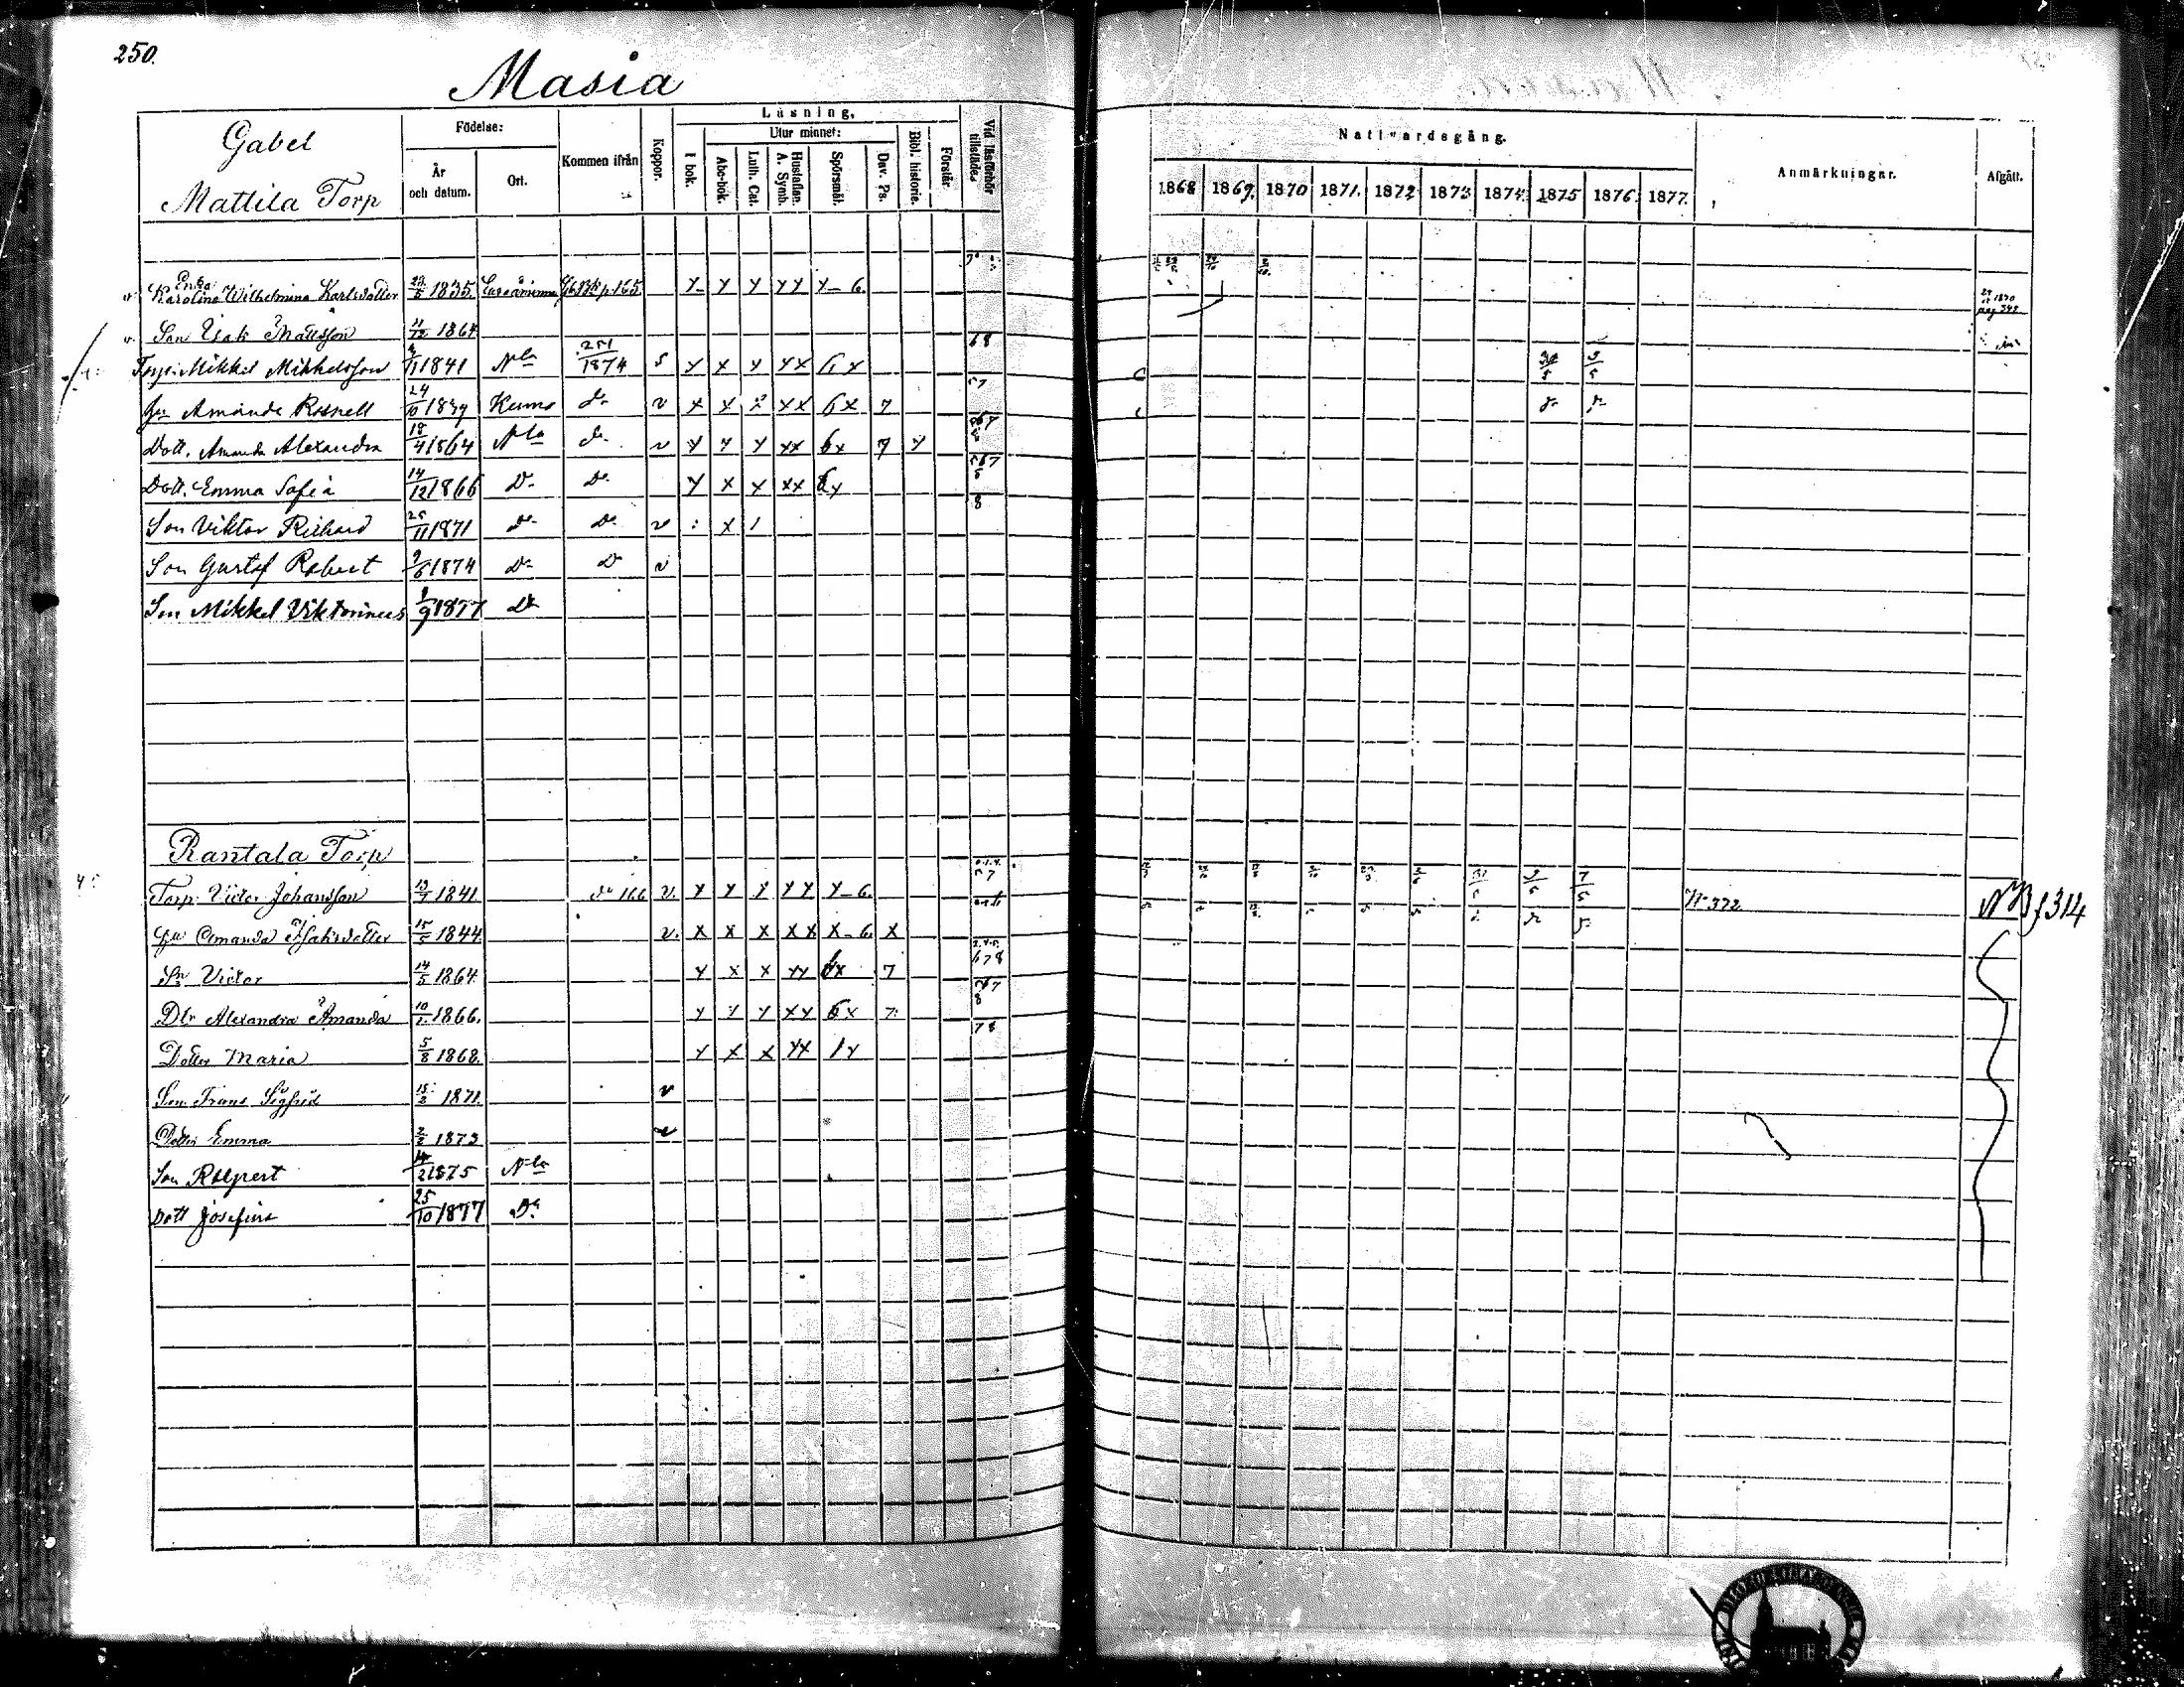 250.
Masia
Gabel
Mattila Torp
Födelse:
År och datum.
Ort.
Kommen ifrån
Koppor.
Läsning,
I bok.
Utur minnet:
Abc-bok.
Luth. Cat.
Hustaflan. A. Symb.
Spörsmål.
Dav. Ps.
Bibl. historie.
Förstår.
Vid läsförhör tillstädes
Nattvardsgång.
1868 1869. 1870 1871. 1872 1873 1874 1875 1876 1877.
Anmärkningar.
Afgått.
Enka Karolina Wilhelmina Karlsdotter 1835. p. 165 x x x xx x-6.
Son Isak Mattsson 11/12 1864
Torp. Mikkel Mikkelsson 1841 Nla 251/1874 s x x x xx 6 x
Amanda Rosnell 24/10 1839 Kumo do v x x xx 6x 7
Dott. Amanda Alexandra 18/4 1864 Nla do v x x x xx 6x 7 x
Dott. Emma Sofia 14/12 1866 Do Do x x x xx 6x
Son Viktor Richard 25/11 1871 Do Do v x 1
Son Gustaf Robert 9/6 1874 Do Do v
Son Mikkel Viktorinus 1/9 1877 Do
Rantala Torp
Torp. Victor Johansson 1841 do 166 v. x x x xx x-6. No 372 NB f 314
Hu Amanda Isaksdotter 15/5 1844 v. x x x xx x-6. x
Sn Victor 14/5 1864 x x x xx 6x 7
Dtr Alexandra Amanda 1866. x x x xx 6x 7
Dotter Maria 5/8 1868. x x x xx 1x
Son Frans Sigfrid 15/2 1871. v
Dotter Emma 2/2 1873 v
Son Robert 14/2 1875 Nla
Dott Josefina 25/10 1877 Do